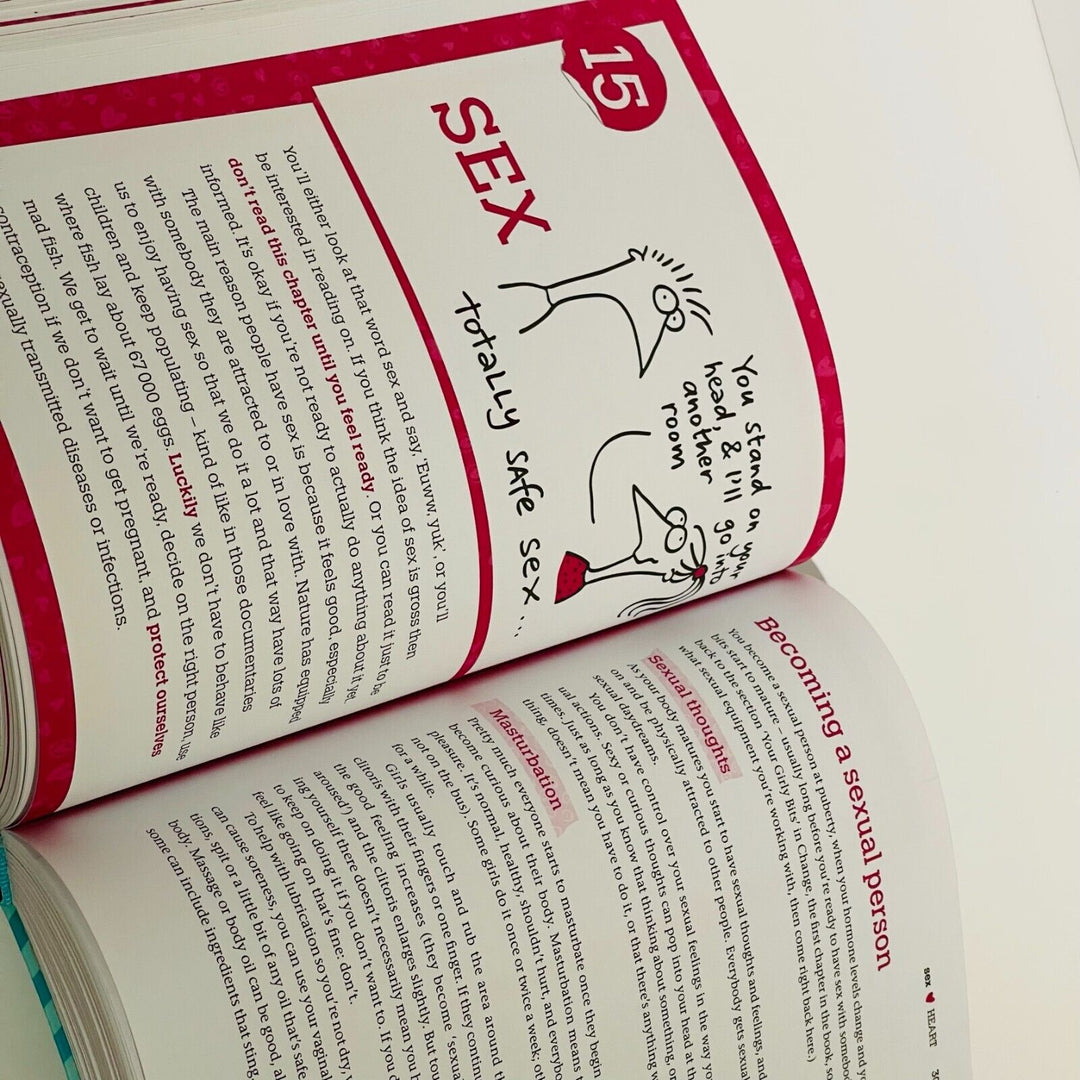 15
SEX
You stand on your
head, & I'll go into
another
room
totally safe sex...
You'll either look at that word sex and say, 'Euww, yuk', or you'll
be interested in reading on. If you think the idea of sex is gross then
don't read this chapter until you feel ready. Or you can read it just to be
informed. It's okay if you're not ready to actually do anything about it yet.
The main reason people have sex is because it feels good, especially
with somebody they are attracted to or in love with. Nature has equipped
us to enjoy having sex so that we do it a lot and that way have lots of
children and keep populating – kind of like in those documentaries
where fish lay about 67 000 eggs. Luckily we don't have to behave like
mad fish. We get to wait until we're ready, decide on the right person, use
contraception if we don't want to get pregnant, and protect ourselves
sexually transmitted diseases or infections.
sex ♥ HEART
Becoming a sexual person
You become a sexual person at puberty, when your hormone levels change and
bits start to mature – usually long before you're ready to have sex with
back to the section 'Your Girly Bits' in Change, the first chapter in the book,
what sexual equipment you're working with, then come right back here.)
Sexual thoughts
As your body matures you start to have sexual thoughts and feelings, and
on and be physically attracted to other people. Everybody gets
sexual daydreams.
You don't have control over your sexual feelings in the way
ual actions. Sexy or curious thoughts can pop into your head at
times. Just as long as you know that thinking about something, or
thing, doesn't mean you have to do it, or that there's anything
Masturbation
Pretty much everyone starts to masturbate once they begin
become curious about their body. Masturbation means
pleasure. It's normal, healthy, shouldn't hurt, and
not on the bus). Some girls do it once or twice a week;
for a while.
Girls usually touch and rub the area around
clitoris with their fingers or one finger. If they
the good feeling increases (they become
aroused') and the clitoris enlarges slightly. But
ing yourself there doesn't necessarily mean you
to keep on doing it if you don't want to. If you
feel like going on that's fine: don't.
To help with lubrication so you're not dry,
can cause soreness, you can use your vaginal
tions, spit or a little bit of any oil that's safe
body. Massage or body oil can be good,
some can include ingredients that sting